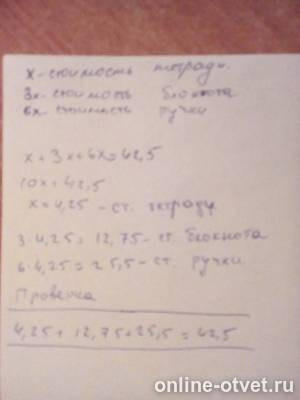 x - стоимость тетради.
3x - стоимость блокнота
6x - стоимость ручки
x + 3x + 6x = 42,5
10x = 42,5
x = 4,25 - ст. тетради
3 · 4,25 = 12,75 - ст. блокнота
6 · 4,25 = 25,5 - ст. ручки.
Проверка
4,25 + 12,75 + 25,5 = 42,5
online-otvet.ru